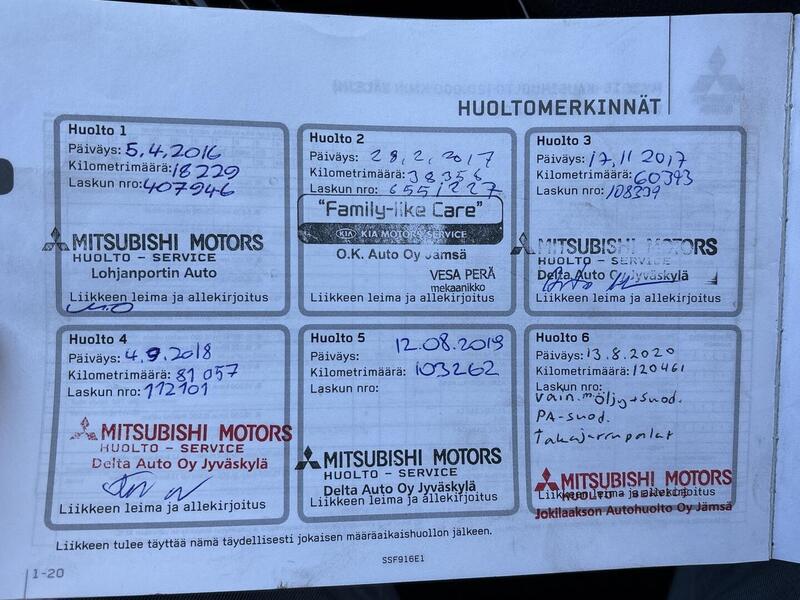 HUOLTOMERKINNÄT
Huolto 1
Päiväys: 5.4.2016
Kilometrimäärä: 18229
Laskun nro: 407946
MITSUBISHI MOTORS
HUOLTO - SERVICE
Lohjanportin Auto
Liikkeen leima ja allekirjoitus
Huolto 2
Päiväys: 28.2.2017
Kilometrimäärä: 38356
Laskun nro: 6551227
"Family-like Care"
KIA KIA MOTORS SERVICE
O.K. Auto Oy Jämsä
VESA PERÄ
mekaanikko
Liikkeen leima ja allekirjoitus
Huolto 3
Päiväys: 17.11 2017
Kilometrimäärä: 60393
Laskun nro: 108399
MITSUBISHI MOTORS
HUOLTO - SERVICE
Delta Auto Oy Jyväskylä
Liikkeen leima ja allekirjoitus
Huolto 4
Päiväys: 4.9.2018
Kilometrimäärä: 81 057
Laskun nro: 112101
MITSUBISHI MOTORS
HUOLTO - SERVICE
Delta Auto Oy Jyväskylä
Liikkeen leima ja allekirjoitus
Huolto 5
Päiväys: 12.08.2019
Kilometrimäärä: 103262
Laskun nro:
MITSUBISHI MOTORS
HUOLTO - SERVICE
Delta Auto Oy Jyväskylä
Liikkeen leima ja allekirjoitus
Huolto 6
Päiväys: 13.8.2020
Kilometrimäärä: 120461
Laskun nro:
vain möljy+suod.
PA-suod.
takajarrupalat
MITSUBISHI MOTORS
HUOLTO - SERVICE
Liikkeen leima ja allekirjoitus
Jokilaakson Autohuolto Oy Jämsä
Liikkeen tulee täyttää nämä täydellisesti jokaisen määräaikaishuollon jälkeen.
SSF916E1
1-20